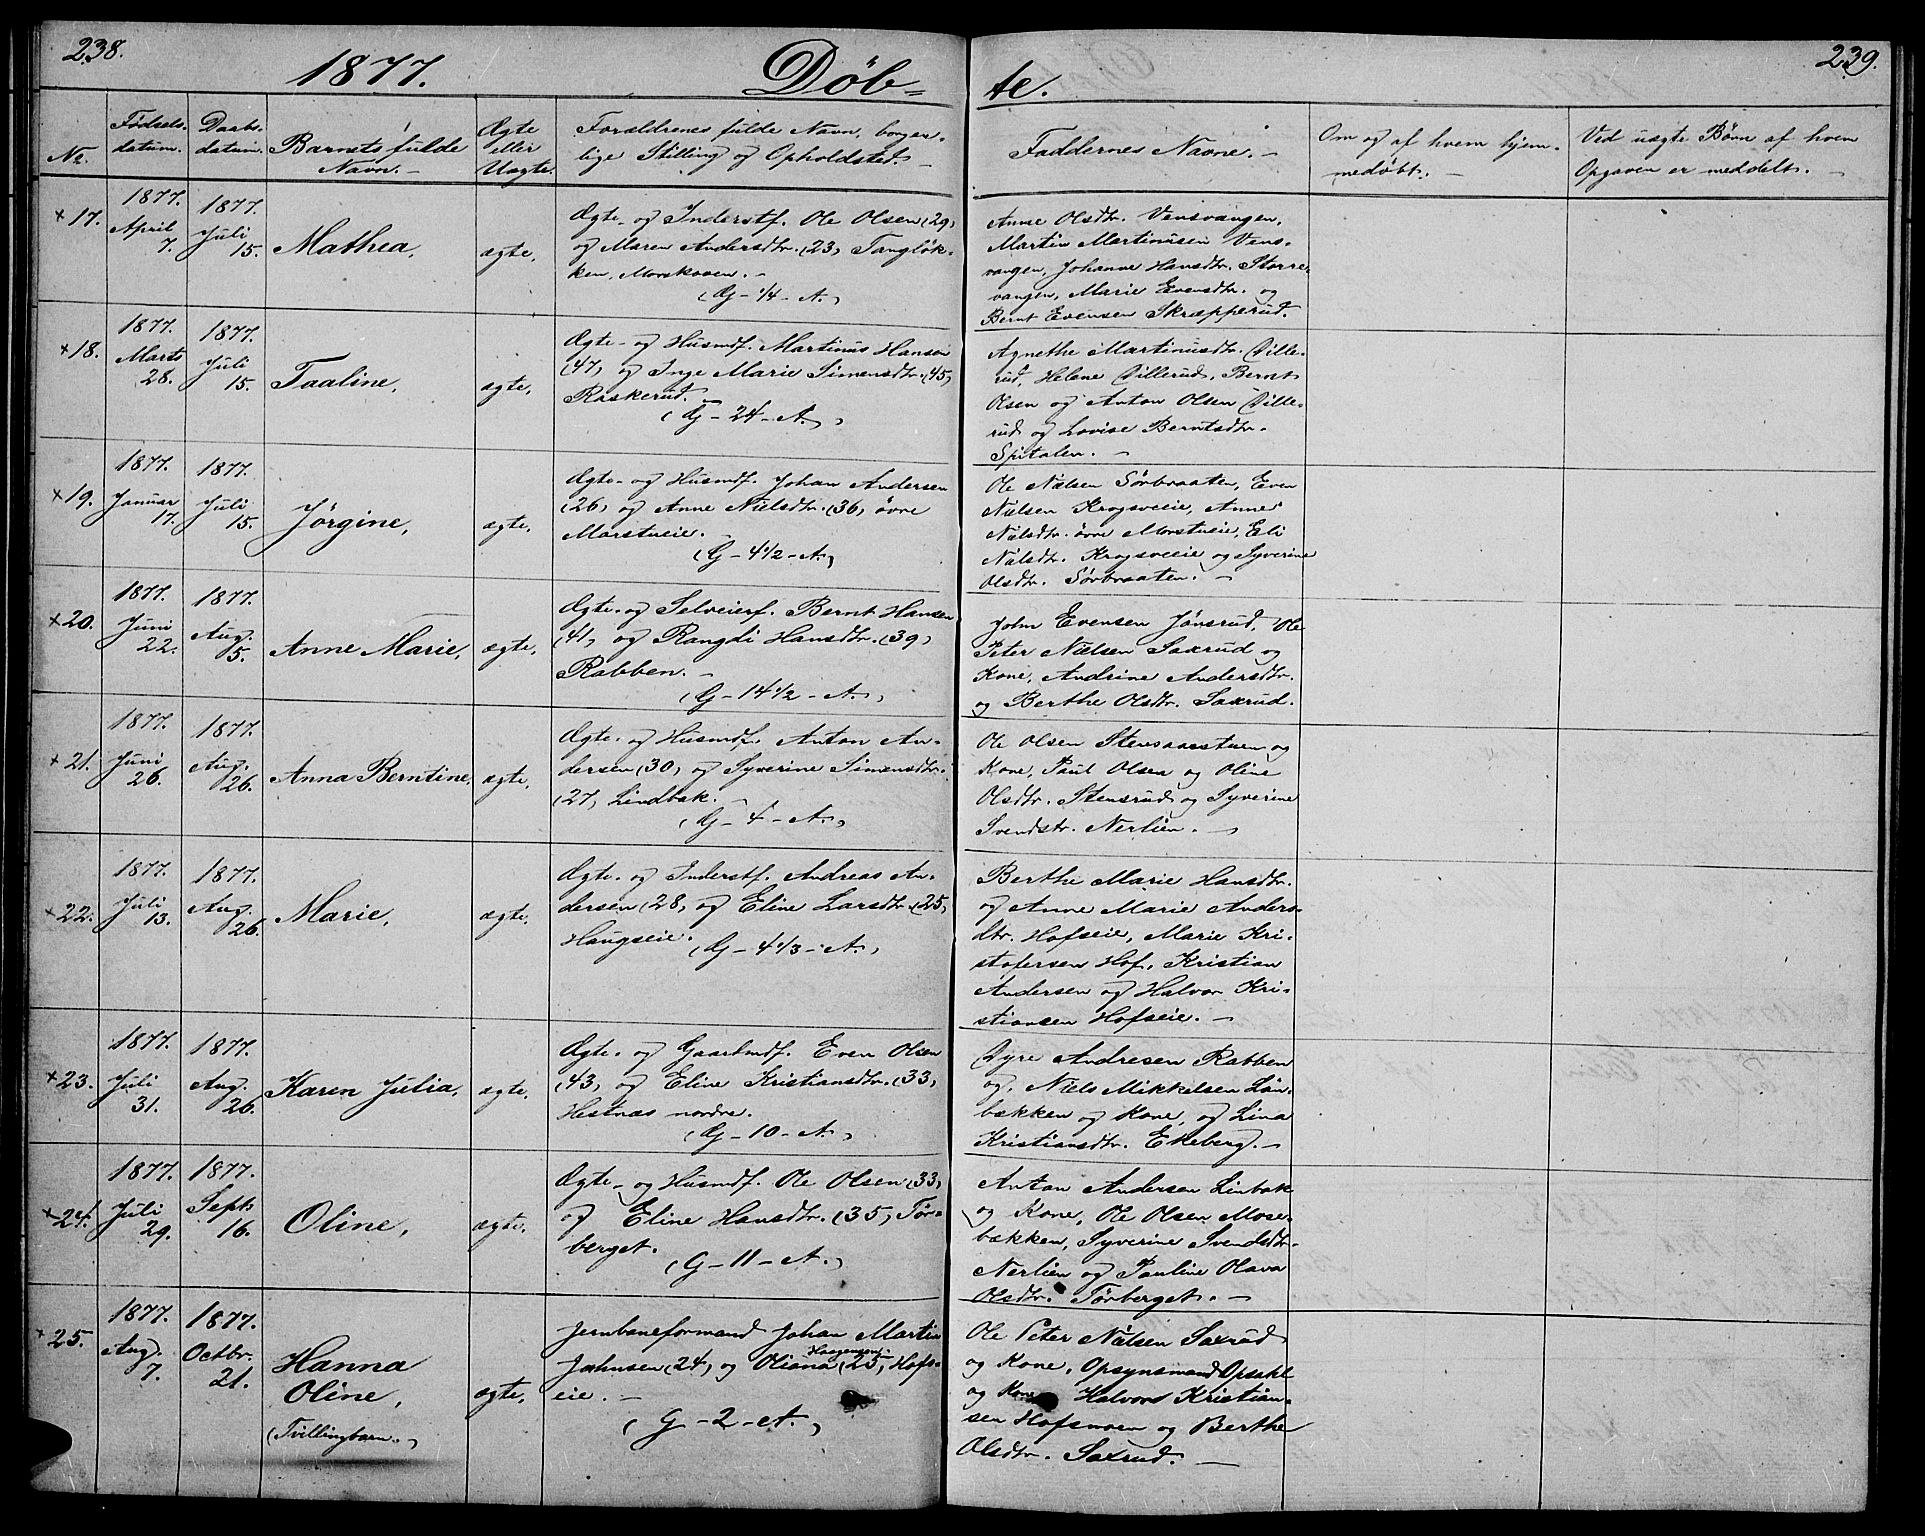 238.
1877.
Døb-
te.
239.
No.
Fødsels-
datum.
Daabs-
datum.
Barnets fulde
Navn. —
Ægte
eller
Uægte.
Forældrenes fulde Navn, borger-
lige Stilling og Opholdsted. —
Faddernes Navne. —
Om og af hvem hjem-
medøbt. —
Ved uægte Børn af hvem
Opgaven er meddelt. —
× 17.
1877.
April
7.
1877.
Juli
15.
Mathea,
ægte,
Ægte- og Inderstf. Ole Olsen (29)
og Maren Andersdtr. (23) Tangløk-
ken, Morskoven. —
(G - 1/4 - A.)
Anne Olsdtr. Vensvangen,
Martin Martinusen Vens-
vangen, Johanne Hansdtr. Storre-
vangen, Marie Evensdtr. og
Bernt Evensen Skræpperud.
× 18.
1877.
Marts
28.
1877.
Juli
15.
Taaline,
ægte,
Ægte- og Husmdf. Martinus Hansen
(47) og Inge Marie Simensdtr. (45)
Raskerud. —
(G - 24 - A.)
Agnethe Martinusdtr. Dille-
rud, Helene Dillerud, Bernt
Olsen og Anton Olsen Dille-
rud og Lovise Berntsdtr.
Spitalen. —
× 19.
1877.
Januar
17.
1877.
Juli
15.
Jørgine,
ægte.
Ægte- og Husmdf. Johan Andersen
(26) og Anne Nielsdtr. (36) øvre
Morstueie. —
(G - 4 1/2 - A.)
Ole Nielsen Sørbraaten, Even
Nielsen Krogsveeie, Anne
Nielsdtr. øvre Morstueie, Eli
Nielsdtr. Krogsveeie og Syverine
Olsdtr. Sørbraaten. —
× 20.
1877.
Juni
22.
1877.
Aug.
5.
Anne Marie,
ægte,
Ægte- og Selveierf. Bernt Hansen
(41) og Rangdi Hansdtr. (39)
Rabben. —
(G - 14 1/2 - A.)
John Evensen Jønsrud, Ole
Peter Nielsen Saxrud og
Kone, Andrine Andersdtr.
og Berthe Olsdtr. Saxrud.
× 21.
1877.
Juni
26.
1877.
Aug.
26.
Anna Berntine,
ægte,
Ægte- og Husmdf. Anton An-
dersen (30) og Syverine Simensdtr.
(27) Lindbak. —
(G - 4 - A.)
Ole Olsen Stensaasstuen og
Kone, Paul Olsen og Oline
Olsdtr. Stensrud og Syverine
Svendstr. Nerlien. —
× 22.
1877.
Juli
13.
1877.
Aug.
26.
Marie,
ægte,
Ægte- og Inderstf. Andreas An-
dersen (28) og Eline Larsdtr. (25)
Haugseie.
(G - 4 1/3 - A.)
Berthe Marie Hansdtr.
og Anne Marie Anders-
dtr. Hofseie, Marie Kri-
stofersen Hof, Kristian
Andersen og Halvor Kri-
stiansen Hofseie. —
× 23.
1877.
Juli
31.
1877.
Aug.
26.
Karen Julia,
ægte,
Ægte- og Gaardmdf. Even Olsen
(43) og Eline Kristiansdtr. (33)
Hestnæs nordre.
(G - 10 - A.)
Dyre Andresen Rabben
og Niels Mikkelsen Løn-
bækken og Kone, og Lina
Kristiansdtr. Ekeberg. —
× 24.
1877.
Juli
29.
1877.
Septb
16.
Oline,
ægte,
Ægte- og Husmdf. Ole Olsen (33)
og Eline Hansdtr. (35) Tør-
berget.
(G - 11 - A.)
Anton Andersen Linbak
og Kone, Ole Olsen Mose-
bækken, Syverine Svendsdtr.
Nerlien og Pauline Olava
Olsdtr. Tørberget. —
× 25.
1877.
Aug.
7.
1877.
Octbr.
21.
Hanna
Oline,
(Tvillingbarn.)
ægte,
Jernbaneformand Johan Martin
Jahnsen (24) og Oliana (25) Hofs-
eie. —
(G - 2 - A.)
Ole Peter Nielsen Saxrud
og Kone, Opsynsmand Opsahl
og Kone Halvor Kristian-
sen Hofsmoen og Berthe
Olsdtr. Saxrud. —